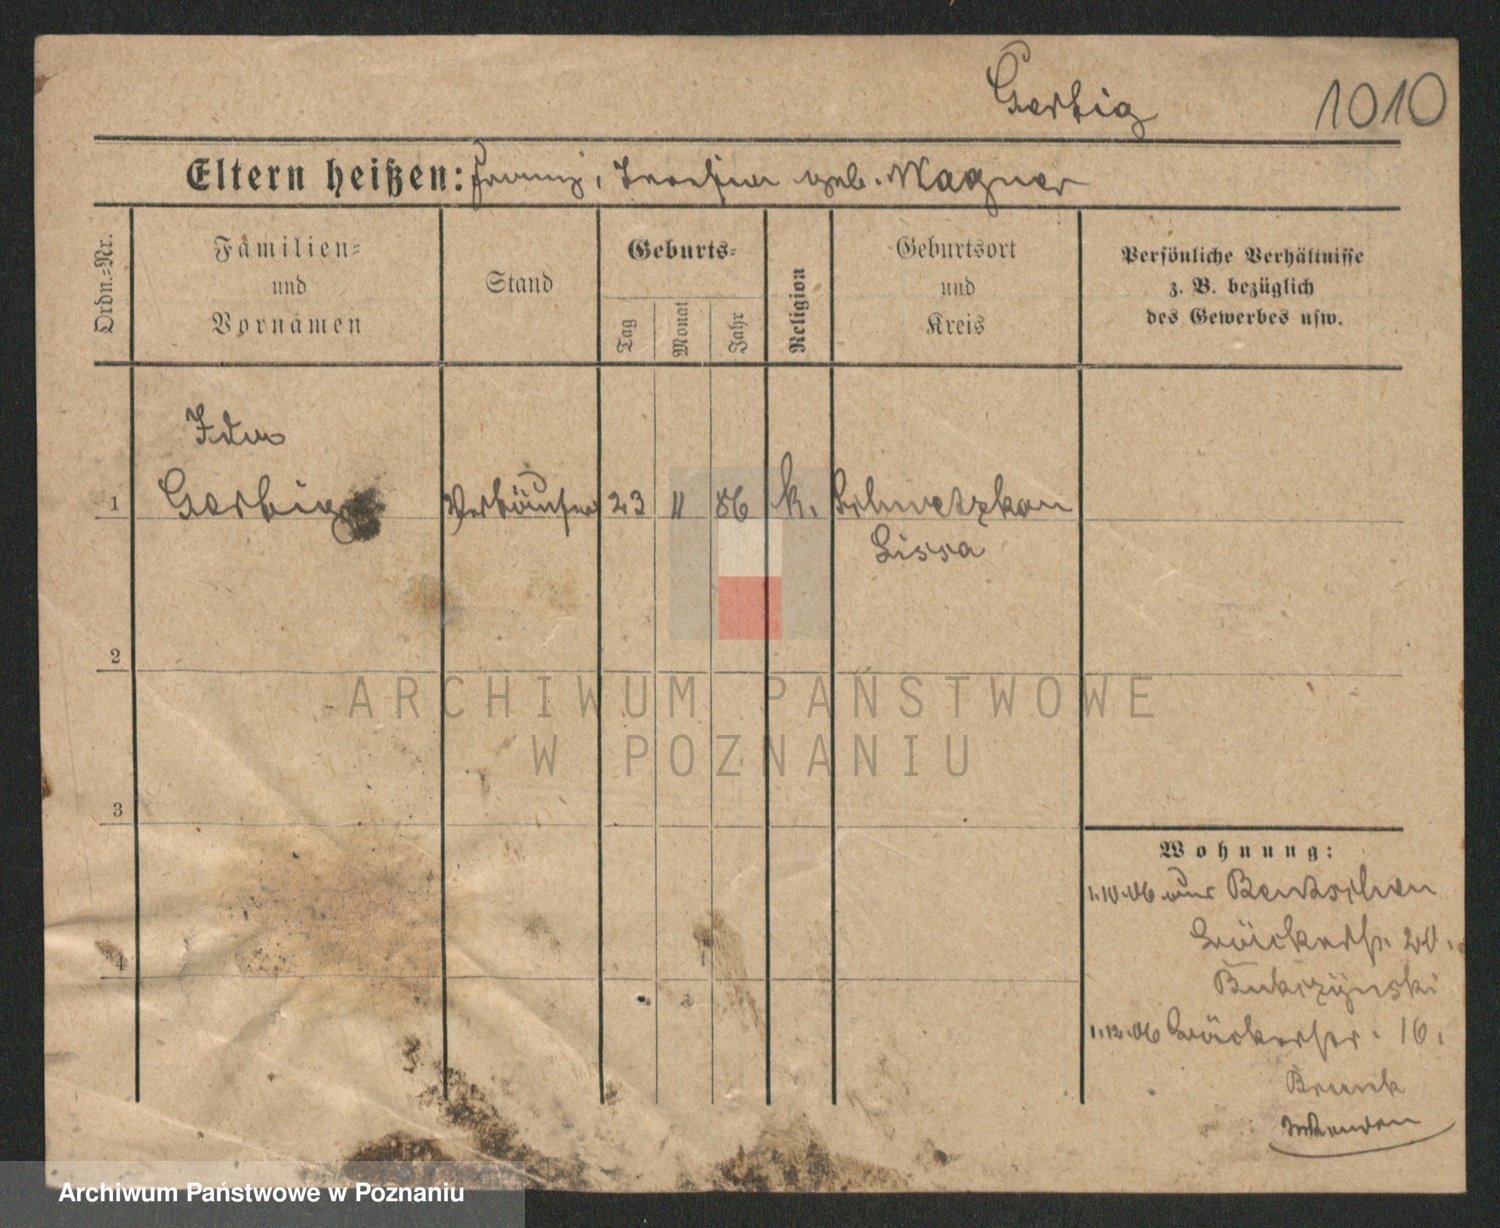 Gerbig 1010
Eltern heißen: Franz, geb. Wagner
Ordn.-Nr.
Familien-
und
Vornamen
Stand
Geburts-
Tag
Monat
Jahr
Religion
Geburtsort
und
Kreis
Persönliche Verhältnisse
z. B. bezüglich
des Gewerbes usw.
Ida
1 Gerbig Verkäuferin 23 11 86 k. Schwetzkau
Lissa
2
3
4
Wohnung:
1.10.06 aus Bentschen
Bäckerstr. 20.
1.12.06 Bäckerstr. 16.
ARCHIWUM PAŃSTWOWE
W POZNANIU
Archiwum Państwowe w Poznaniu